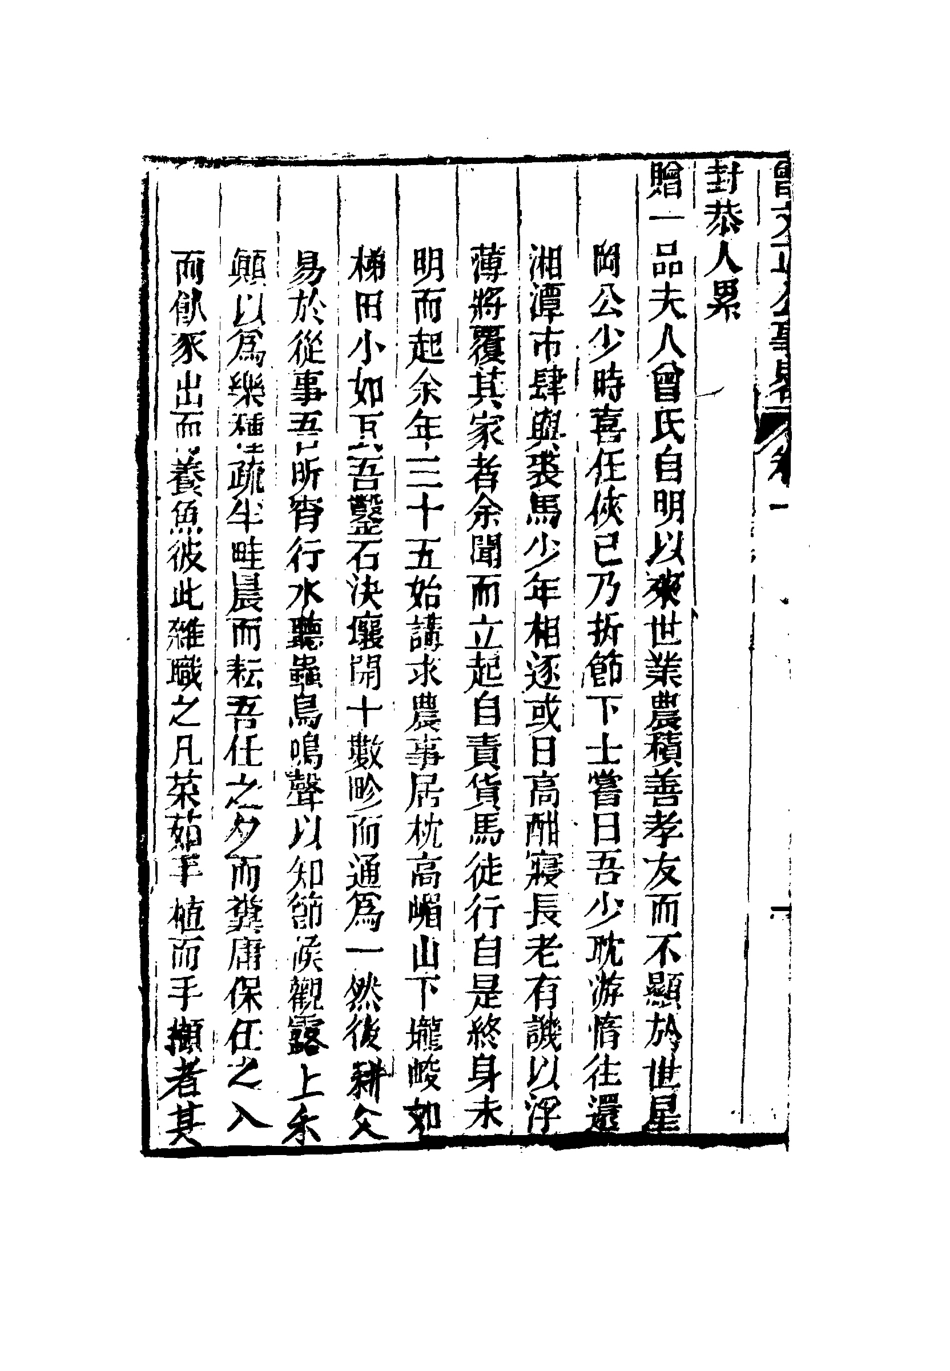 曾文正公事略 卷一 一
封恭人累
贈一品夫人曾氏自明以來世業農積善孝友而不顯於世星
岡公少時喜任俠已乃折節下士嘗曰吾少耽游惰往還
湘潭市肆與裘馬少年相逐或日高酣寢長老有譏以浮
薄將覆其家者余聞而立起自責貨馬徒行自是終身未
明而起余年三十五始講求農事居枕高嵋山下壠峻如
梯田小如瓦吾鑿石決壤開十數畛而通爲一然後耕夫
易於從事吾昕宵行水聽蟲鳥鳴聲以知節候觀露上禾
顛以爲樂種蔬半畦晨而耘吾任之夕而糞庸保任之入
而飤豕出而養魚彼此雜職之凡菜茹手植而手擷者其